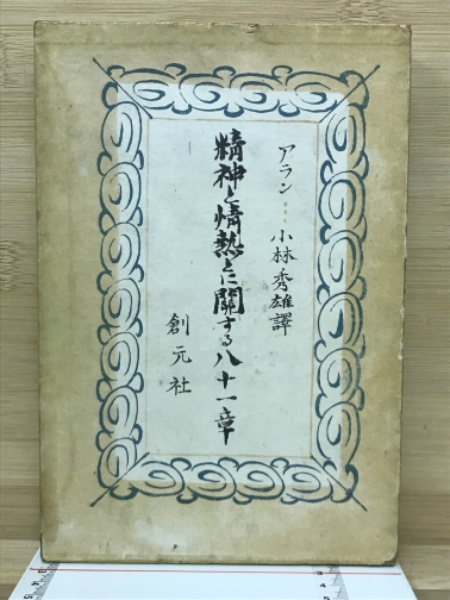 アラン…小林秀雄譯
精神と情熱とに關する八十一章
創元社